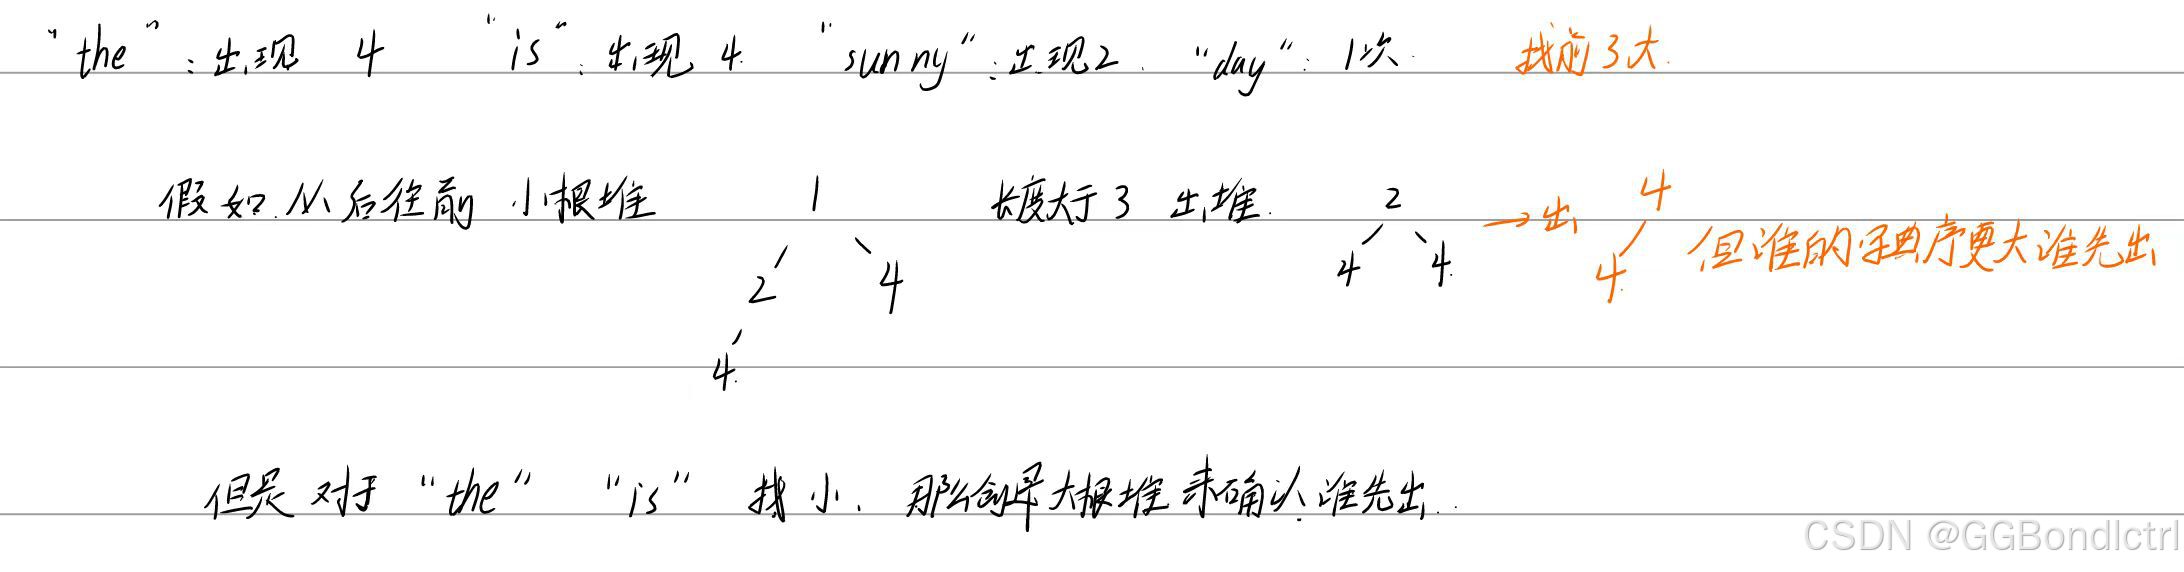 "the":出现 4 "is":出现 4. "sunny":出现2. "day": 1次. 找前3大.
假如.从后往前 小根堆 1 长度大于3 出堆. 2 →出 4
2 4 4 4. 4. 但谁的字典序更大谁先出
4.
但是 对于 "the" "is" 找 小. 那么创建大根堆来确认谁先出..
CSDN @GGBondlctrl